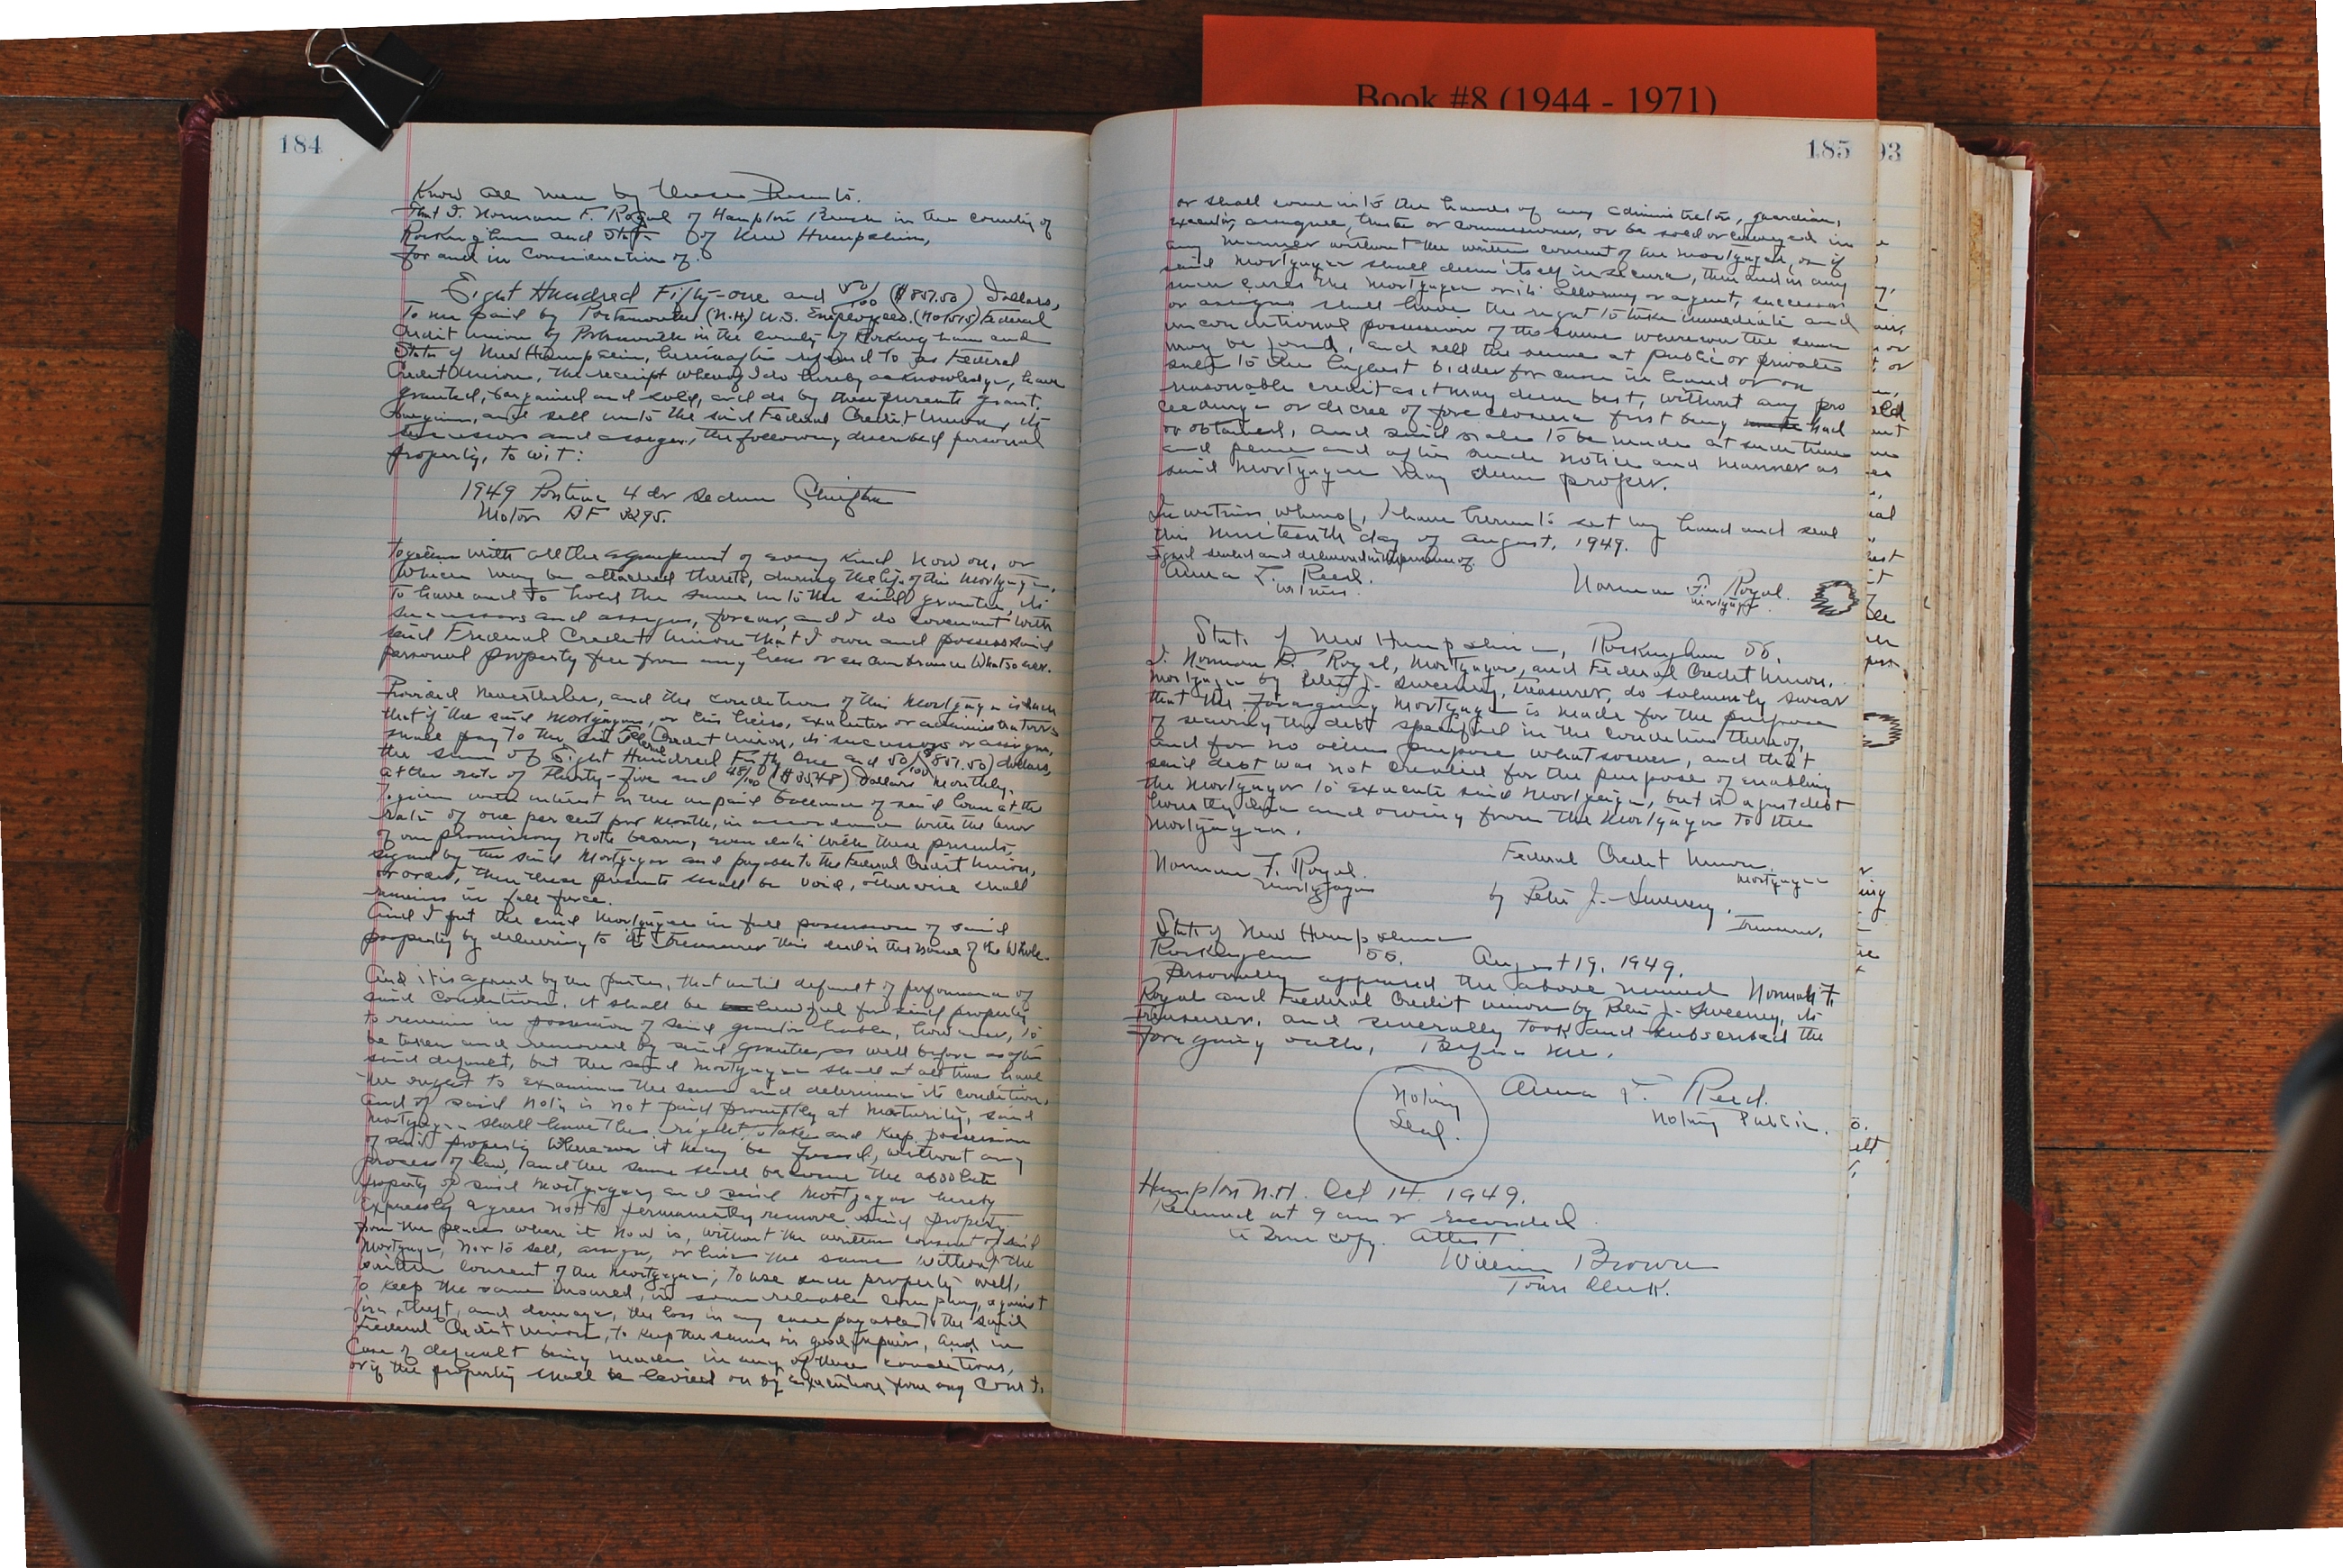 Book #8 (1944 - 1971)
184
Know all men by these Presents.
that I, Norman F. Royal of Hampton Beach in the county of
Rockingham and State of New Hampshire,
for and in Consideration of
Eight Hundred Fifty-one and 50/100 ($851.50) Dollars,
To me paid by Portsmouth (N.H.) U.S. Employees (No 1515) Federal
Credit Union of Portsmouth in the County of Rockingham and
State of New Hampshire, hereinafter referred to as Federal
Credit Union, the receipt whereof I do hereby acknowledge, have
granted, bargained and sold, and do by these presents grant,
bargain, and sell unto the said Federal Credit Union, its
successors and assigns, the following described personal
property, to wit:
1949 Pontiac 4 dr Sedan Chieftan
Motor
together with all the equipment of every kind now on, or
which may be attached thereto, during the life of this mortgage,
To have and to hold the same unto the said grantee, its
successors and assigns, forever, and I do covenant with
said Federal Credit Union that I own and possess said
personal property free from any liens or encumbrance Whatsoever.
Provided Nevertheless, and the conditions of this Mortgage is such
that if the said Mortgagor, or his heirs, executor or administrators
shall pay to the said Federal Credit Union, its successors or assigns,
the sum of Eight Hundred Fifty One and 50/100 ($851.50) dollars,
at the rate of Thirty-five and 48/100 ($35.48) Dollars monthly.
Together with interest on the unpaid balance of said loan at the
rate of one per cent per month, in accordance with the tenor
of one promissory note bearing even date with these presents,
signed by the said Mortgagor and payable to the Federal Credit Union,
or order, then these presents shall be void, otherwise shall
remain in full force.
And I put the said Mortgagee in full possession of said
property by delivering to its treasurer this deed in the name of the Whole.
And it is agreed by the parties, that until default of performance of
said Conditions, it shall be lawful for said property
to remain in possession of said grantor liable, however, to
be taken and removed by said grantee, as well before as after
said default, but the said Mortgagee shall at all times have
the right to examine the same and determine its condition,
and if said Note is not paid promptly at maturity, said
mortgagee shall have the right to take and keep possession
of said property wherever it may be found, without any
process of law, and the same shall become the absolute
property of said Mortgagee, and said Mortgagor hereby
expressly agrees not to permanently remove said property
from the place where it now is, without the written consent of said
Mortgagee, nor to sell, assign, or hire the same without the
written consent of the Mortgagee; to use such property well,
to keep the same insured, in some reliable company, against
fire, theft, and damage, the loss in any case payable to the said
Federal Credit Union, to keep the same in good repair, and in
Case of default being made in any of these conditions,
or if the property shall be levied on by execution from any Court,
185
or shall come into the hands of any administrator, guardian,
executor, assignee, trustee or commissioner, or be sold or conveyed in
any manner without the written consent of the mortgagee, or if
said Mortgagee shall deem itself insecure, then and in any
such case the Mortgagee or its attorney or agent, successors
or assigns shall have the right to take immediate and
unconditional possession of the same wherever the same
may be found, and sell the same at public or private
sale to the highest bidder for cash in hand or on
reasonable credit as it may deem best, without any pro
ceedings or decree of foreclosure first being made had
or obtained, and said sale to be made at such time
and place and after such notice and manner as
said Mortgagee may deem proper.
In witness whereof, I have hereunto set my hand and seal
this nineteenth day of August, 1949.
Signed sealed and delivered in the presence of
Anna L. Reed.
witness.
Norman F. Royal.
mortgagor.
State of New Hampshire, Rockingham SS.
I, Norman F. Royal, Mortgagor, and Federal Credit Union,
Mortgagee by Peter J. Sweeney, Treasurer, do solemnly swear
that the foregoing Mortgage is made for the purpose
of securing the debt specified in the condition thereof,
and for no other purpose whatsoever, and that
said debt was not created for the purpose of enabling
the Mortgagor to execute said Mortgage, but is a just debt
honestly due and owing from the Mortgagor to the
Mortgagee.
Norman F. Royal.
Mortgagor
Federal Credit Union
Mortgagee
by Peter J. Sweeney,
Treasurer.
State of New Hampshire
Rockingham SS. August 19, 1949.
Personally appeared the above named Norman F.
Royal and Federal Credit Union by Peter J. Sweeney, its
treasurer, and severally took and subscribed the
foregoing oath, Before me,
Notary
Seal.
Anna L. Reed.
Notary Public.
Hampton N.H. Oct 14. 1949.
Received at 9 am & recorded
a True copy. Attest
William Brown
Town Clerk.
93